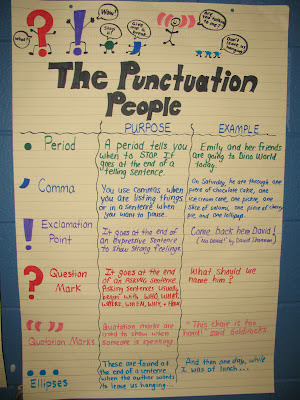 What?
Wow!
Stop it!
Give me a break.
Are you talking to me?
Don't leave us hanging...
The Punctuation
People
PURPOSE
EXAMPLE
Period
A period tells you
when to STOP. It
goes at the end of a
telling sentence.
Emily and her friends
are going to Dino World
today.
Comma
You use commas when
you are listing things
or in a sentence when
you want to pause.
On Saturday, he ate through one
piece of chocolate cake, one
ice cream cone, one pickle, one
slice of salami, one piece of cherry
pie and one lollipop.
Exclamation
Point
It goes at the end of
an expressive sentence
to show strong feelings.
Come back here David!
(No David! by David Shannon)
Question
Mark
It goes at the end
of an ASKING sentence.
Asking sentences usually
begin with WHO, WHAT,
WHERE, WHEN, WHY, + HOW
What should we
name him?
Quotation Marks
Quotation marks are
used to show when
someone is speaking.
"This chair is too
hard" said Goldilocks.
Ellipses
These are found at
the end of a sentence
when the author wants
to leave us hanging...
And then one day, while
I was at lunch...